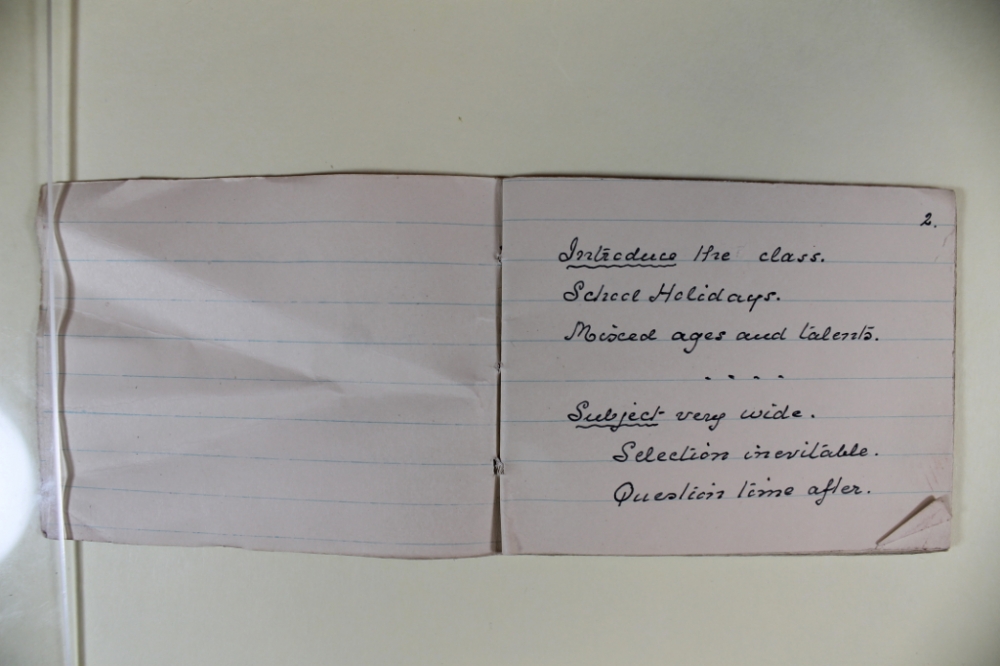 2.
Introduce the class.
School Holidays.
Mixed ages and talents.
. . . .
Subject very wide.
Selection inevitable.
Question time after.